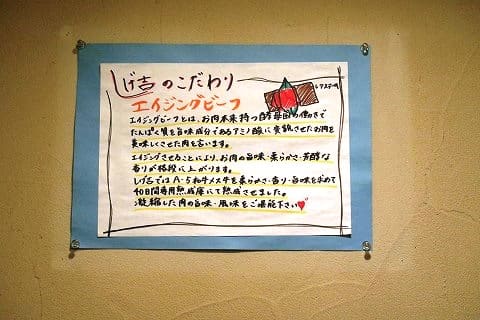 しげ吉のこだわり
エイジングビーフ
エイジングビーフとは、お肉本来持つ酵母菌の働きで
たんぱく質を旨味成分であるアミノ酸に変貌させたお肉を
美味しくさせた肉を言います。
エイジングさせることにより、お肉の旨味・柔らかさ・芳醇な
香りが格段に上がります。
しげ吉ではA-5和牛メス牛を柔らかさ・香り・旨味を求めて
40日間専用熟成庫にて熟成させました。
凝縮した肉の旨味・風味をご堪能下さい